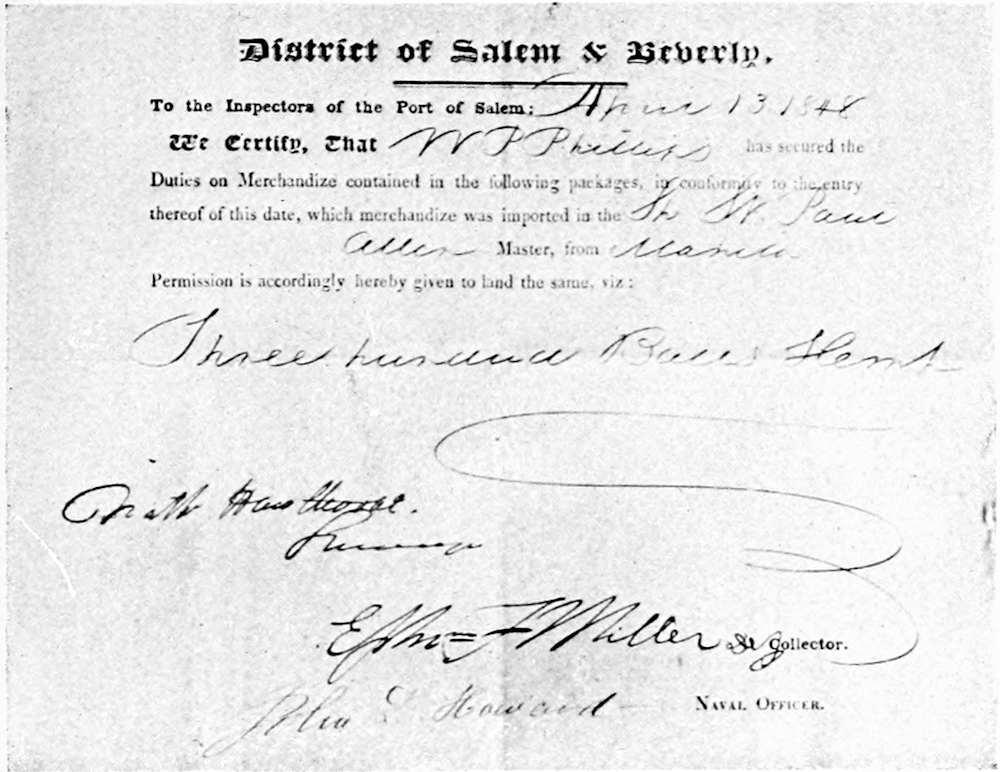 District of Salem & Beverly.
To the Inspectors of the Port of Salem: April 13 1848
We Certify, That W P Phillips has secured the
Duties on Merchandize contained in the following packages, in conformity to the entry
thereof of this date, which merchandize was imported in the Sh St. Paul
Allen Master, from Manila
Permission is accordingly hereby given to land the same, viz:
Three hundred Bales Hemp
Nath Hawthorne.
Surveyor
Ephm F Miller Dy Collector.
John D Howard NAVAL OFFICER.